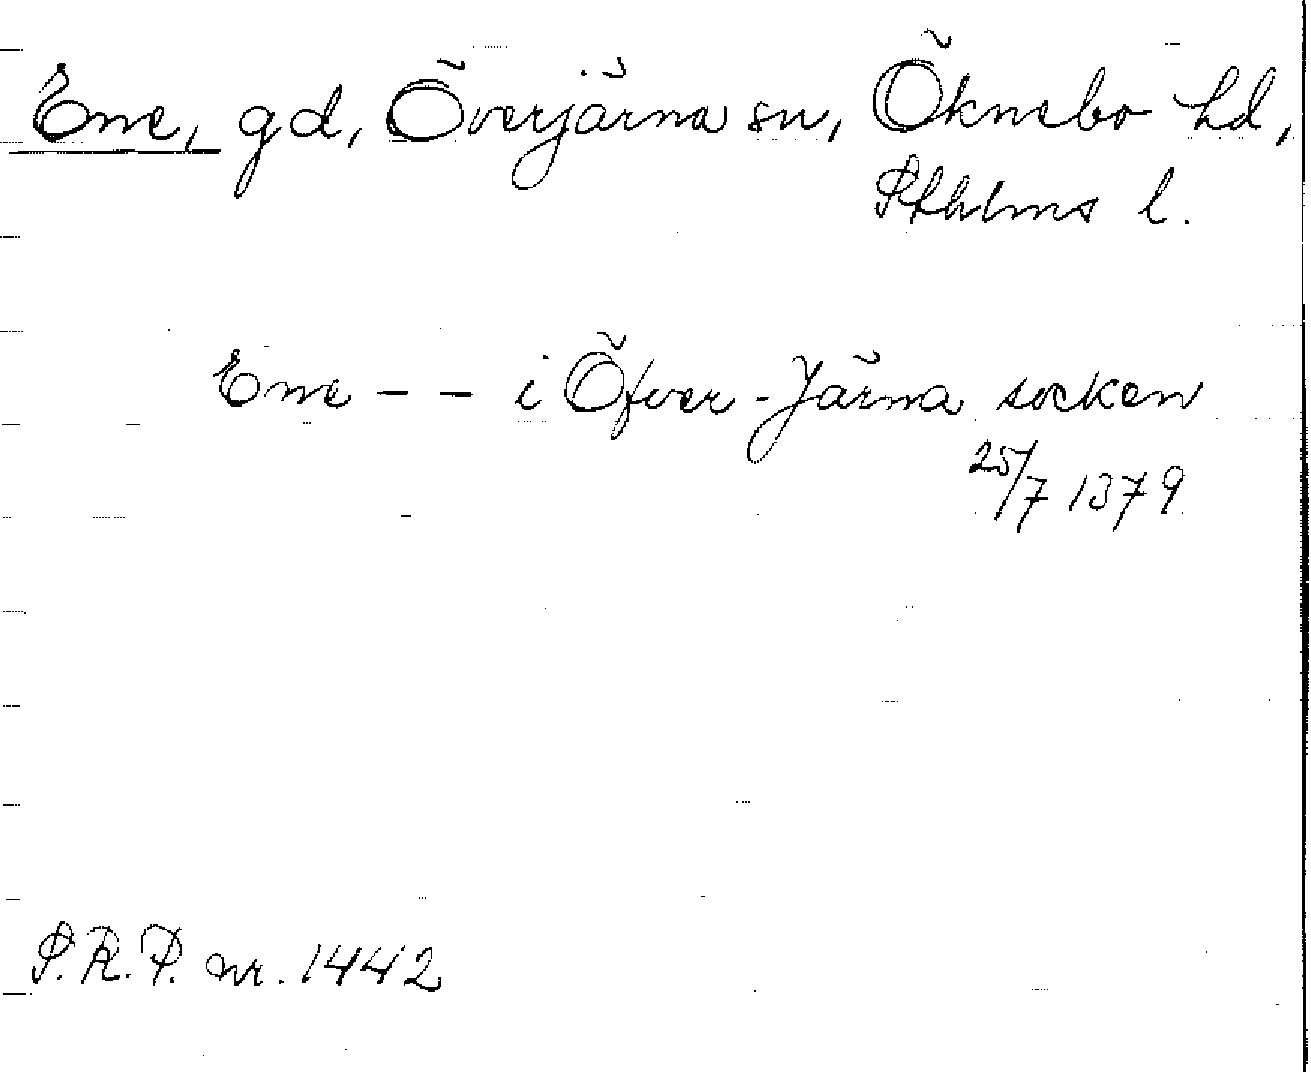 Ene, gd, Överjärna sn, Öknebo hd,
Sthlms l.
Ene - - i Öfver-Järna socken
25/7 1379
S.R.P. nr. 1442